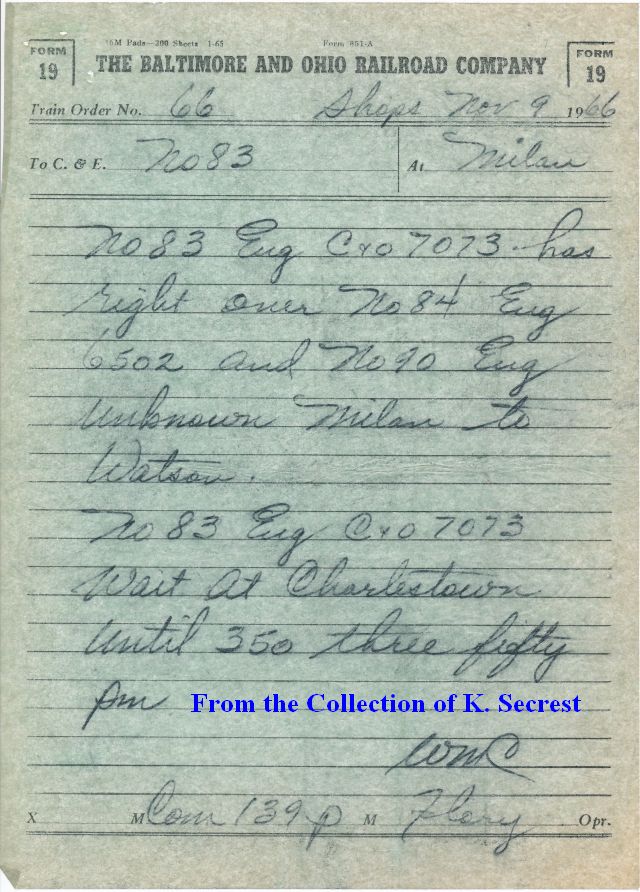 FORM 19
6M Pads—200 Sheets 1-65 Form 851-A
FORM 19
THE BALTIMORE AND OHIO RAILROAD COMPANY
Train Order No. 66 Shops Nov 9 1966
To C. & E. No 83 At Milan
No 83 Eng C+O 7073 has
right over No 84 Eng
6502 and No 90 Eng
unknown Milan to
Watson.
No 83 Eng C+O 7073
Wait at Charlestown
until 350 three fifty
pm
From the Collection of K. Secrest
WMC
X M Com 139 p M Flory Opr.